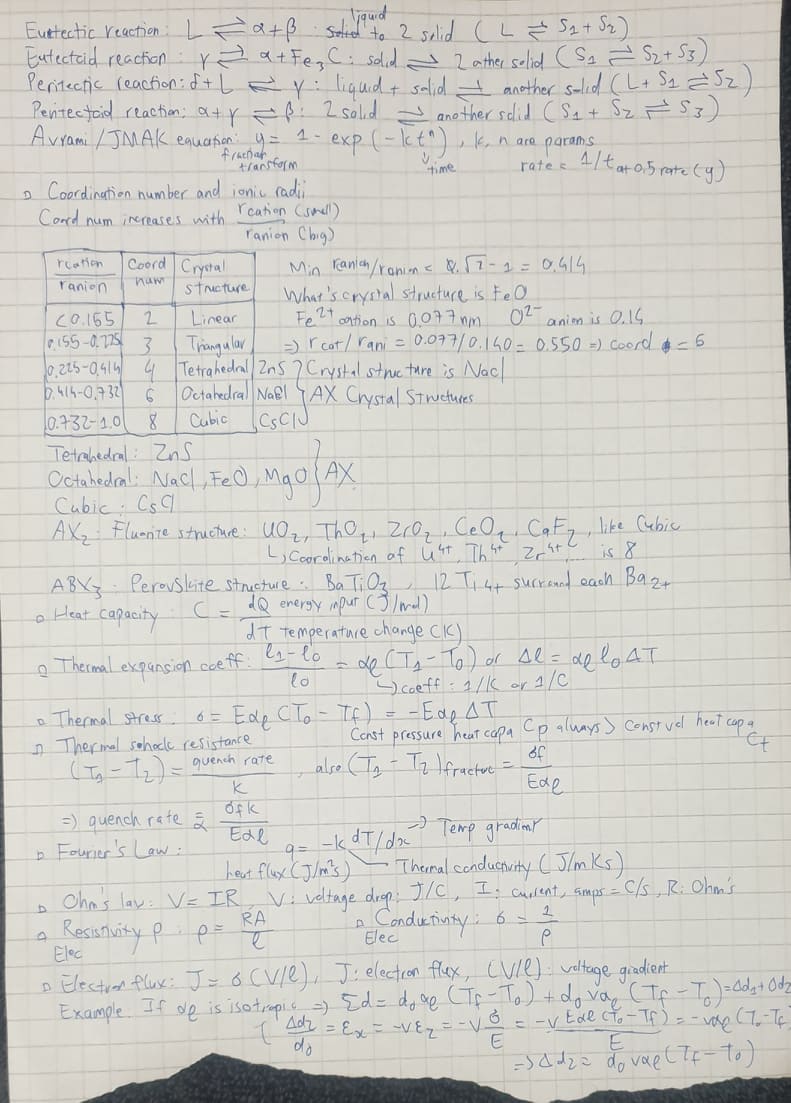 Eutectic reaction: L ⇌ α+β : liquid to 2 solid (L ⇌ S1+S2)
Eutectoid reaction: γ ⇌ α+Fe3C : solid ⇌ 2 other solid (S1 ⇌ S2+S3)
Peritectic reaction: δ+L ⇌ γ : liquid + solid ⇌ another solid (L+S1 ⇌ S2)
Peritectoid reaction: α+γ ⇌ β : 2 solid ⇌ another solid (S1 + S2 ⇌ S3)
Avrami/JMAK equation: y = 1 - exp(-kt^n), k, n are params
fraction transform
time
rate = 1/t at 0,5 rate (y)
Coordination number and ionic radii
Coord num increases with rcation (small) / ranion (big)
rcation/ranion | Coord num | Crystal structure
<0.155 | 2 | Linear
0,155-0,225 | 3 | Triangular
0,225-0,414 | 4 | Tetrahedral | ZnS
0.414-0,732 | 6 | Octahedral | NaCl
0.732-1.0 | 8 | Cubic | CsCl
} AX Crystal Structures
√2 - 1 = 0.414
What's crystal structure is FeO
Fe2+ cation is 0.077nm O2- anion is 0.14
=> rcat/rani = 0.077/0.140 = 0.550 => coord = 6
Crystal structure is NaCl
Tetrahedral: ZnS
Octahedral: NaCl, FeO, MgO } AX
Cubic: CsCl
AX2: Fluorite structure: UO2, ThO2, ZrO2, CeO2, CaF2, like Cubic
↳ Coordination of U4+, Th4+, Zr4+, ... is 8
ABX3: Perovskite structure: BaTiO3, 12 Ti4+ surround each Ba2+
Heat capacity: C = dQ energy input (J/mol) / dT temperature change (K)
Thermal expansion coeff: l1-l0 / l0 = αl (T1-T0) or Δl = αl l0 ΔT
↳ coeff: 1/K or 1/C
Thermal stress: σ = Eαl (T0 - Tf) = -Eαl ΔT
Const pressure heat capa Cp always > Const vol heat capa
Thermal shock resistance
(T1 - T2) = quench rate / k, also (T1 - T2)fracture = σf / Eαl
=> quench rate ≅ σf k / Eαl
Fourier's Law: q = -k dT/dx → Temp gradient
heat flux (J/m²s) Thermal conductivity (J/mKs)
Ohm's law: V = IR, V: voltage drop: J/C, I: current, amps = C/s, R: Ohm's
Elec Resistivity ρ: ρ = RA / l
Elec Conductivity: σ = 1 / ρ
Electron flux: J = σ (V/l), J: electron flux, (V/l): voltage gradient
Example: If αl is isotropic => Σd = d0 αl (Tf - T0) + d0 vαl (Tf - T0) = Δd1 + Δd2
( Δd2/d0 = εx = -vεz = -v σ/E = -v Eαl (T0 - Tf) / E = -vαl (T0 - Tf)
=> Δd2 = d0 vαl (Tf - T0)